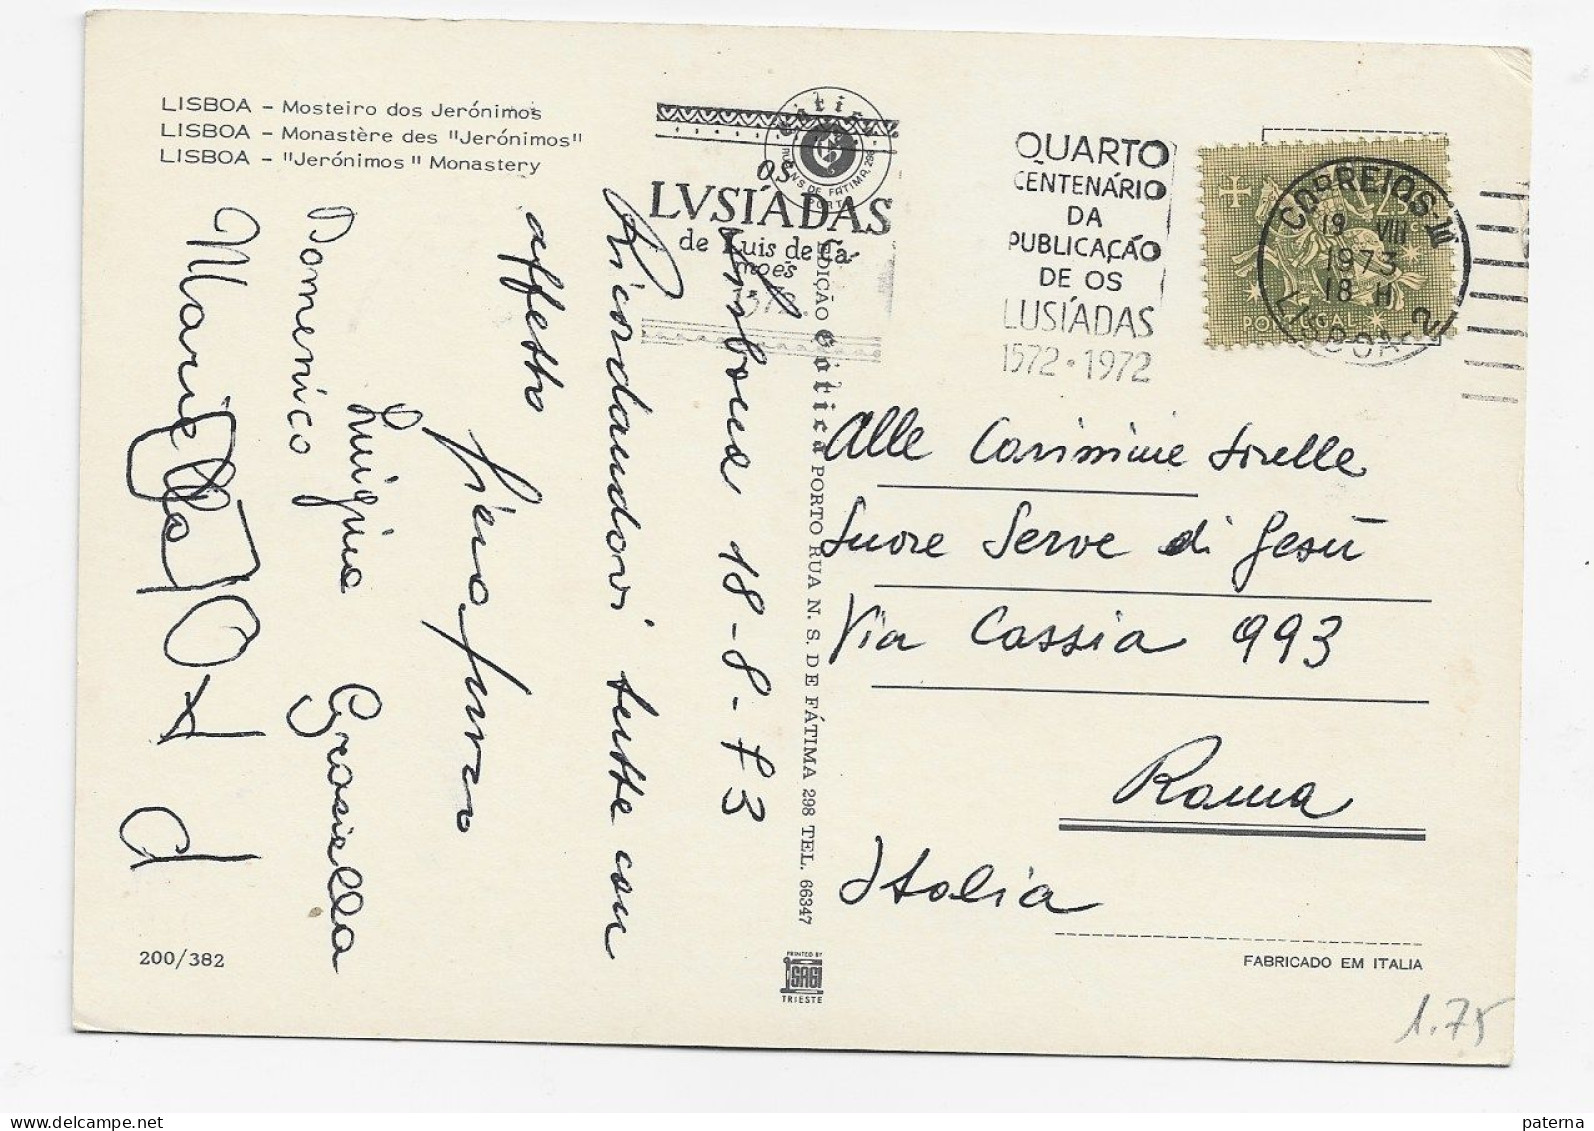 LISBOA - Mosteiro dos Jerónimos
LISBOA - Monastère des "Jerónimos"
LISBOA - "Jerónimos" Monastery
Lisbona 18-8-73
Ricordandovi tutte con
affetto
Luigina Graziella
Domenico
Mariella
200/382
EDIÇÃO Gótica PORTO RUA N. S. DE FÁTIMA 298 TEL. 66347
PRINTED BY
SAGI
TRIESTE
Gótica
RUA N. S. DE FATIMA, 298
PORTO
OS
LVSÍADAS
de Luis de Ca-
mões
QUARTO
CENTENÁRIO
DA
PUBLICAÇÃO
DE OS
LUSÍADAS
1572 • 1972
CORREIOS
19 VIII
1973
18 H
LISBOA-2
PORTUGAL
Alle Carissime Sorelle
Suore Serve di Gesù
Via Cassia 993
Roma
Italia
FABRICADO EM ITALIA
1.75
www.delcampe.net
paterna